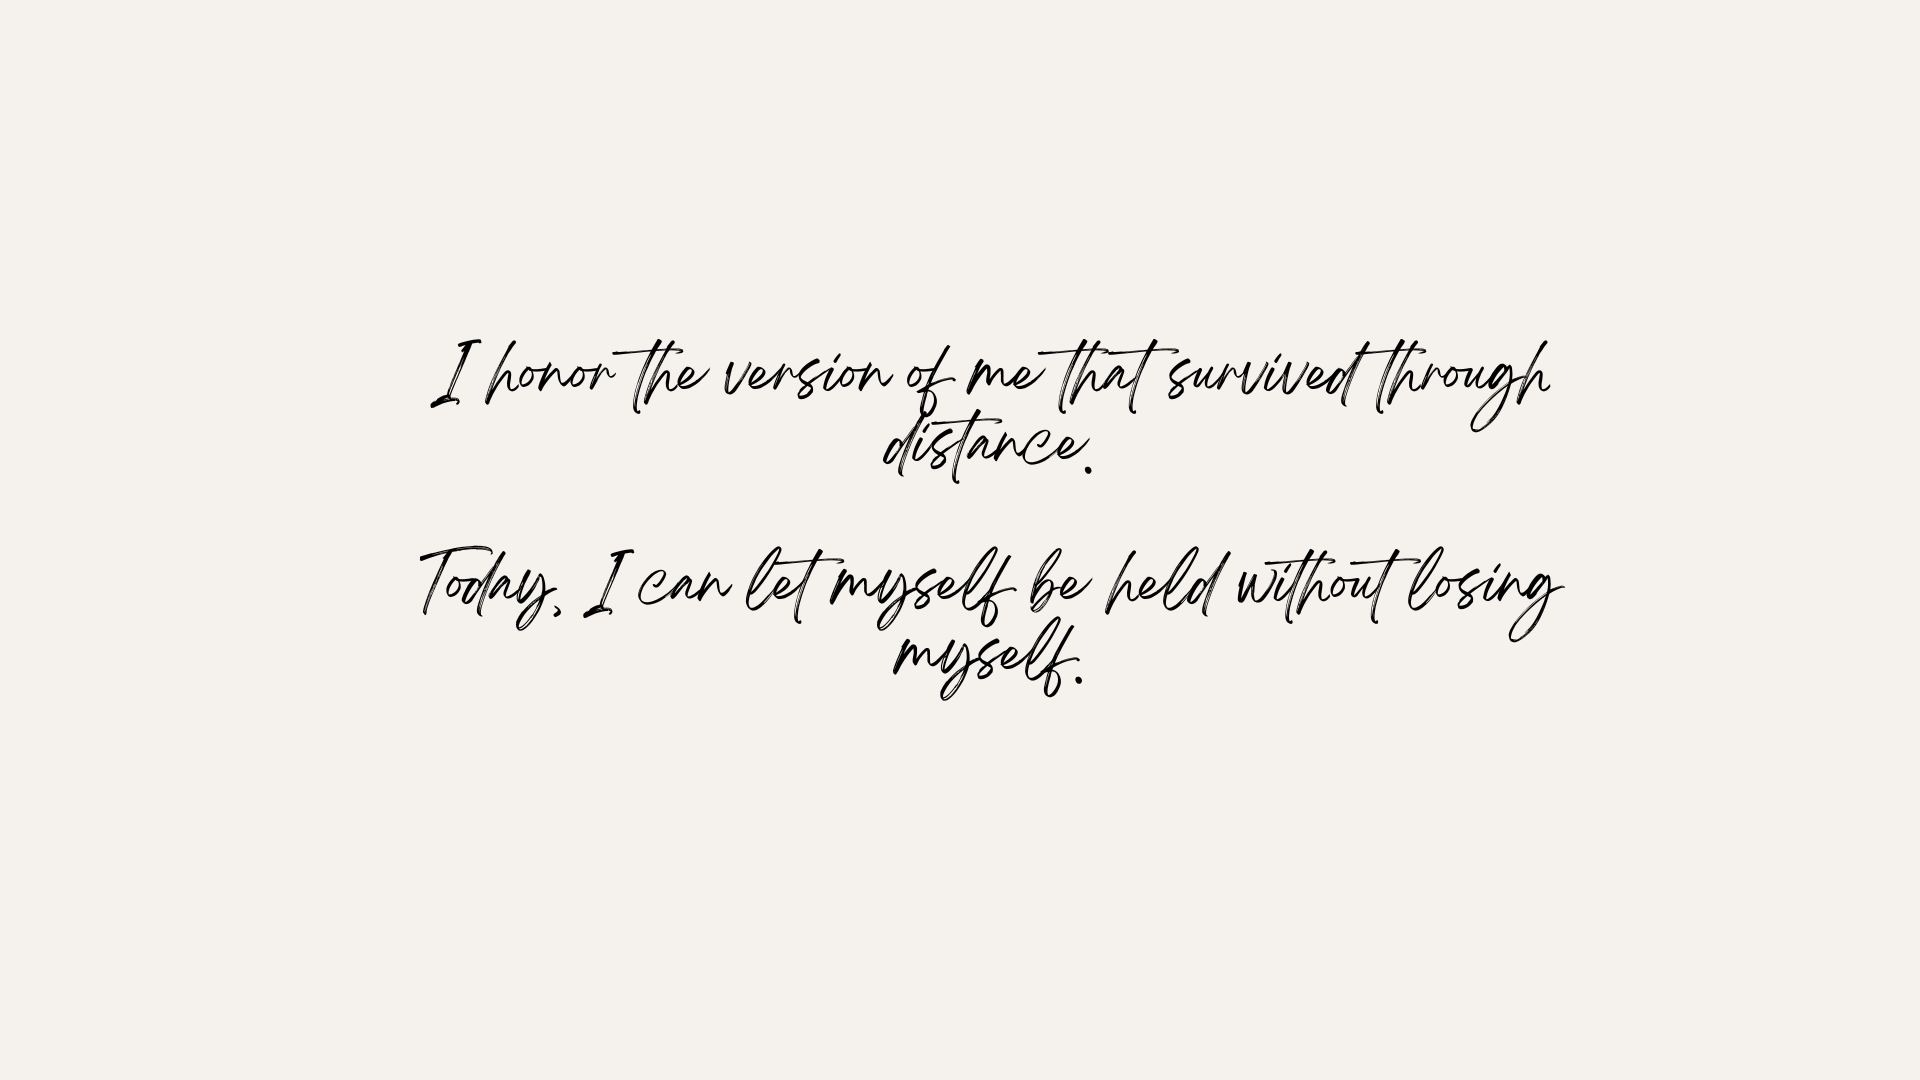 I honor the version of me that survived through
distance.
Today, I can let myself be held without losing
myself.